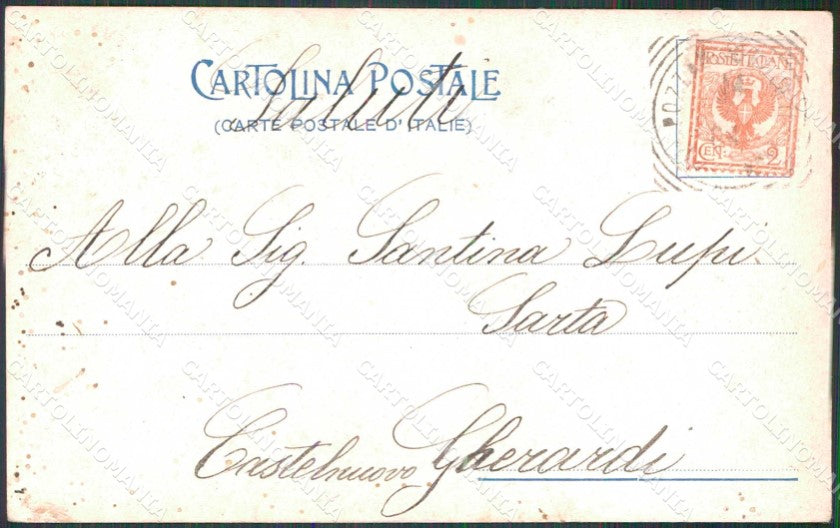 CARTOLINA POSTALE
Saluti
(CARTE POSTALE D'ITALIE)
POSTE ITALIANE
CENT. 2
Alla Sig. Santina Lupi
Sarta
Castelnuovo Gherardi
CARTOLINOMANIA